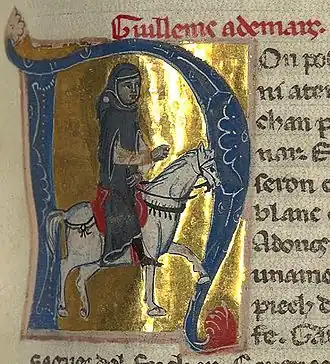 Guillems ademars.
On pot
ni aten
chan p
nar. E
seron e
blanc
Adonc
unamo
piech de
fe. Ca